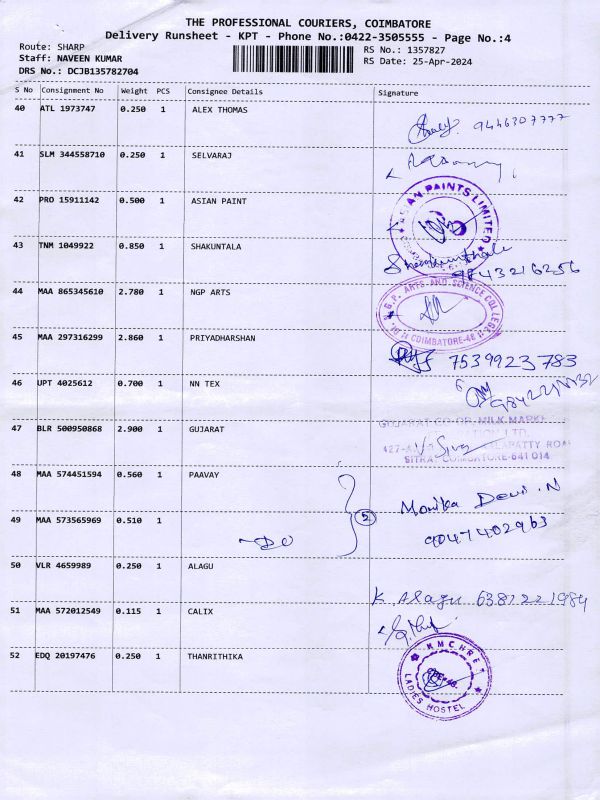 THE PROFESSIONAL COURIERS, COIMBATORE
Delivery Runsheet - KPT - Phone No.:0422-3505555 - Page No.:4
Route: SHARP
RS No.: 1357827
Staff: NAVEEN KUMAR
RS Date: 25-Apr-2024
DRS No.: DCJB135782704
S No Consignment No Weight PCS Consignee Details Signature
40 ATL 1973747 0.250 1 ALEX THOMAS
9446307777
41 SLM 344558710 0.250 1 SELVARAJ
42 PRO 15911142 0.500 1 ASIAN PAINT
ASIAN PAINTS LIMITED
43 TNM 1049922 0.850 1 SHAKUNTALA
9843216256
44 MAA 865345610 2.780 1 NGP ARTS
ARTS AND SCIENCE COLLEGE
COIMBATORE-48
45 MAA 297316299 2.860 1 PRIYADHARSHAN
7539923783
46 UPT 4025612 0.700 1 NN TEX
47 BLR 500950868 2.900 1 GUJARAT
GUJARAT CO-OP. MILK MARK
SITRA, COIMBATORE-641 014
48 MAA 574451594 0.560 1 PAAVAY
Monika Devi.N
49 MAA 573565969 0.510 1
2
~DO
9047402963
50 VLR 4659989 0.250 1 ALAGU
K Alagu 6381221984
51 MAA 572012549 0.115 1 CALIX
52 EDQ 20197476 0.250 1 THANRITHIKA
KMCHRET
LADIES HOSTEL